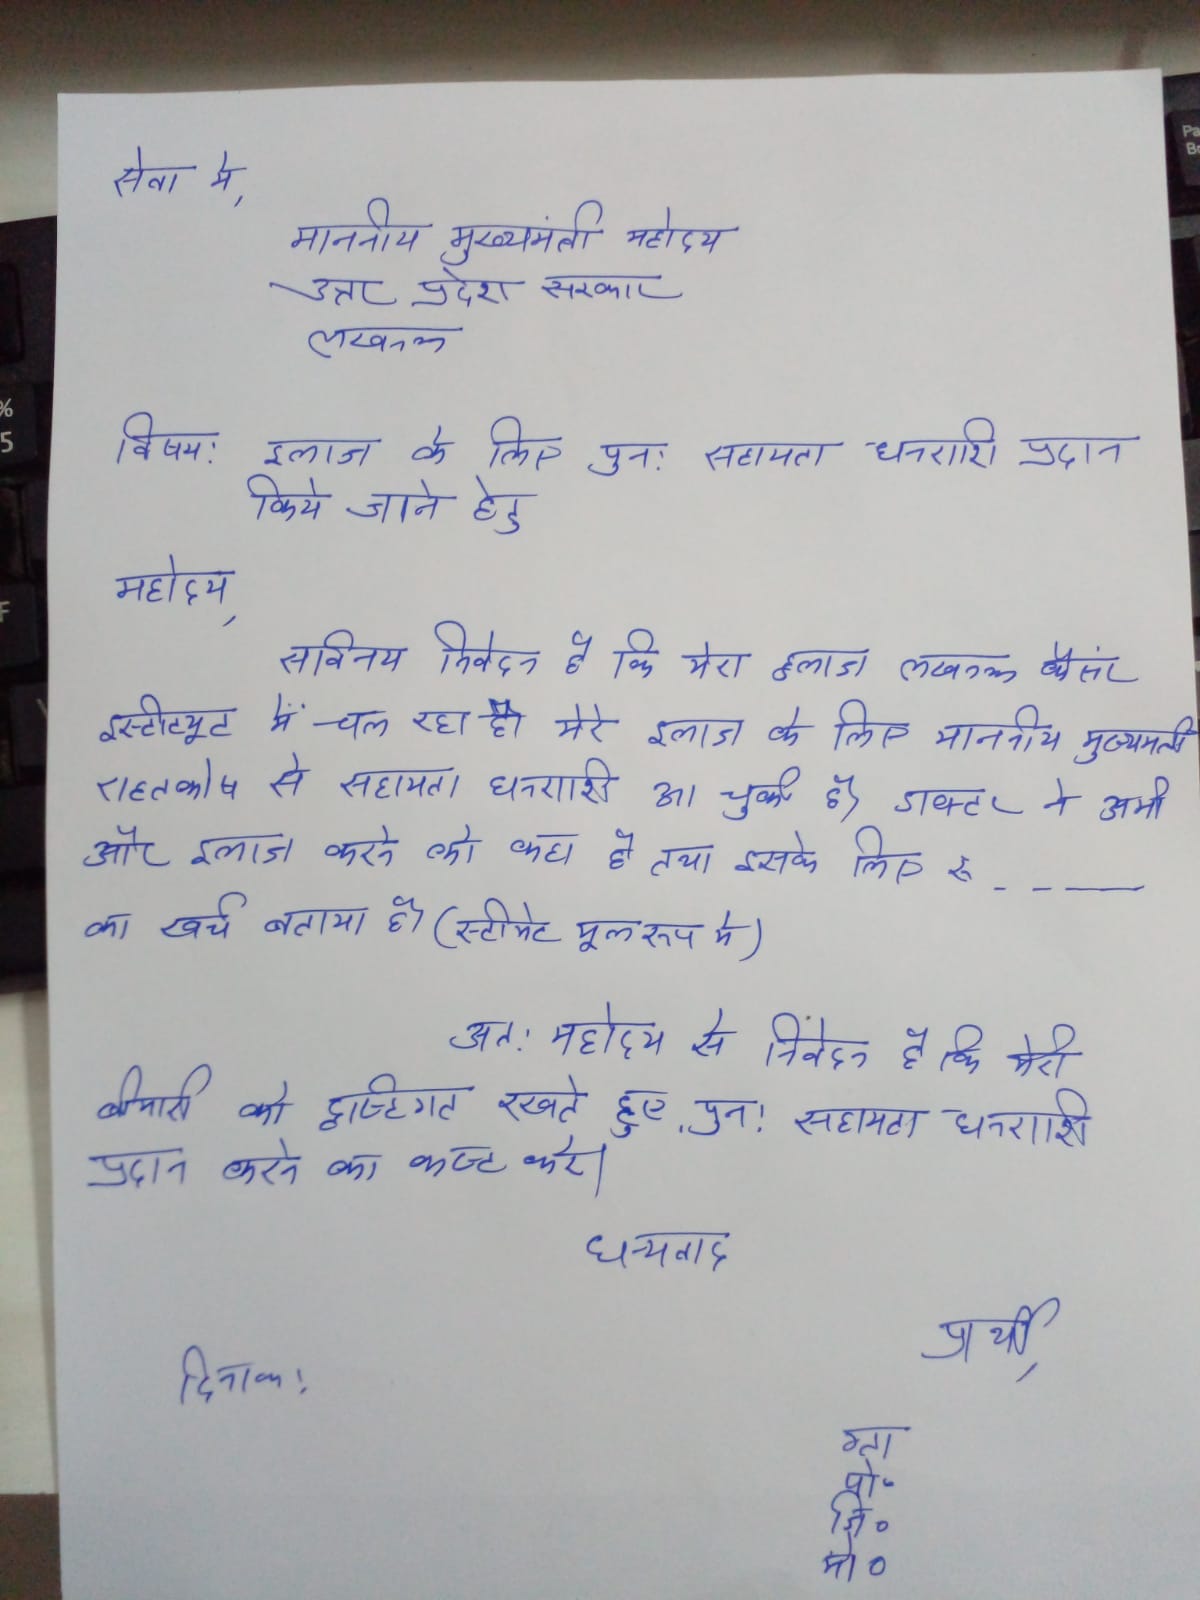 सेवा में,
माननीय मुख्यमंत्री महोदय
उत्तर प्रदेश सरकार
लखनऊ
विषय: इलाज के लिए पुन: सहायता धनराशि प्रदान
किये जाने हेतु
महोदय,
सविनय निवेदन है कि मेरा इलाज लखनऊ कैंसर
इंस्टीट्यूट में चल रहा है। मेरे इलाज के लिए माननीय मुख्यमंत्री
राहतकोष से सहायता धनराशि आ चुकी है। डाक्टर ने अभी
और इलाज करने को कहा है तथा इसके लिए रू - - ——
का खर्च बताया है। (स्टीमेट मूलरूप में)
अत: महोदय से निवेदन है कि मेरी
बीमारी को दृष्टिगत रखते हुए, पुन: सहायता धनराशि
प्रदान करने का कष्ट करें।
धन्यवाद
प्रार्थी,
दिनांक:
पो॰
जि॰
मो॰
Pa
Br
%
5
F